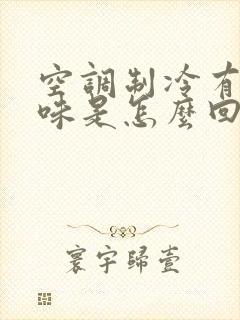 空調制冷有
味是怎麼回
寰宇歸壹